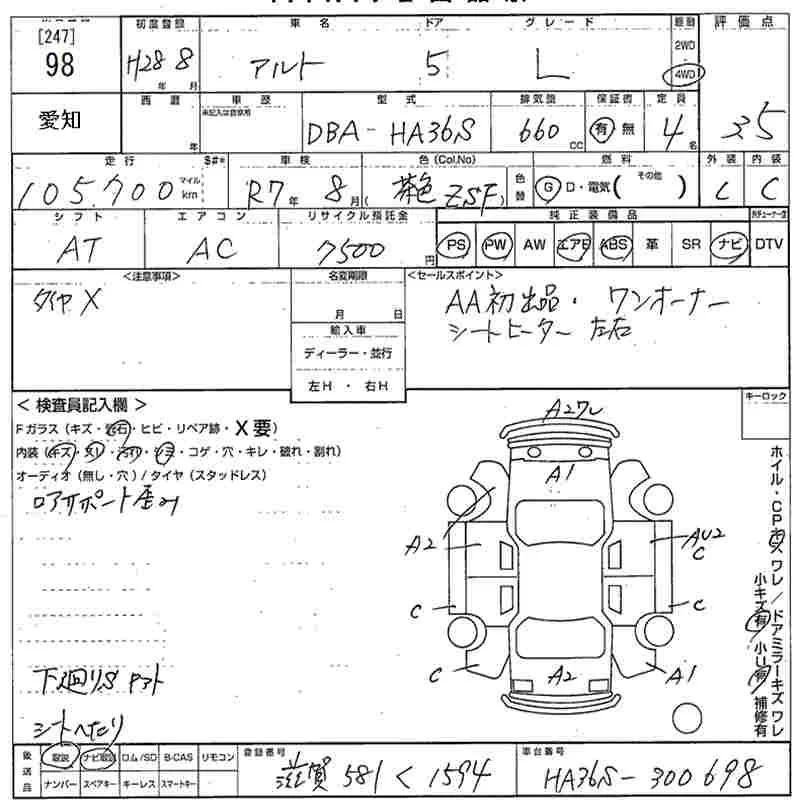 [247]
98
初度登録
H28 8
年 月
車名 ドア グレード
アルト 5 L
駆動
2WD
4WD
評価点
3.5
愛知
西暦
年
車歴
未記入は自家用
型式
DBA-HA36S
排気量
660
CC
保証書
有 無
定員
4
名
走行
105,700
マイル
km
$#*
車検
R7年 8月
色(Col.No)
茶色 ZSF
色替
燃料
G D・電気( その他 )
外装
C
内装
C
シフト
AT
エアコン
AC
リサイクル預託金
7500
円
純正装備品
PS PW AW エアB ABS 革 SR ナビ DTV
<注意事項>
タイヤX
名変期限
月 日
輸入車
ディーラー・並行
左H ・ 右H
<セールスポイント>
AA初出品・ワンオーナー
シートヒーター 左右
<検査員記入欄>
Fガラス(キズ・飛石・ヒビ・リペア跡・X要)
内装(キズ・スレ・汚れ・シミ・コゲ・穴・キレ・破れ・割れ)
オーディオ(無し・穴)/タイヤ(スタッドレス)
ロアサポート歪み
下廻りS
シートへたり
キーロック
A27レ
A1
A2
AU2
C
C
C
C
A1
A2
ホイル・CPキズ ワレ/ドアミラーキズ ワレ
小キズ有 小U有 補修有
後送品
取説 ナビ取説 ロム/SD B-CAS リモコン
ナンバー スペアキー キーレス スマートキー
登録番号
滋賀 581 く 1594
車台番号
HA36S-300698